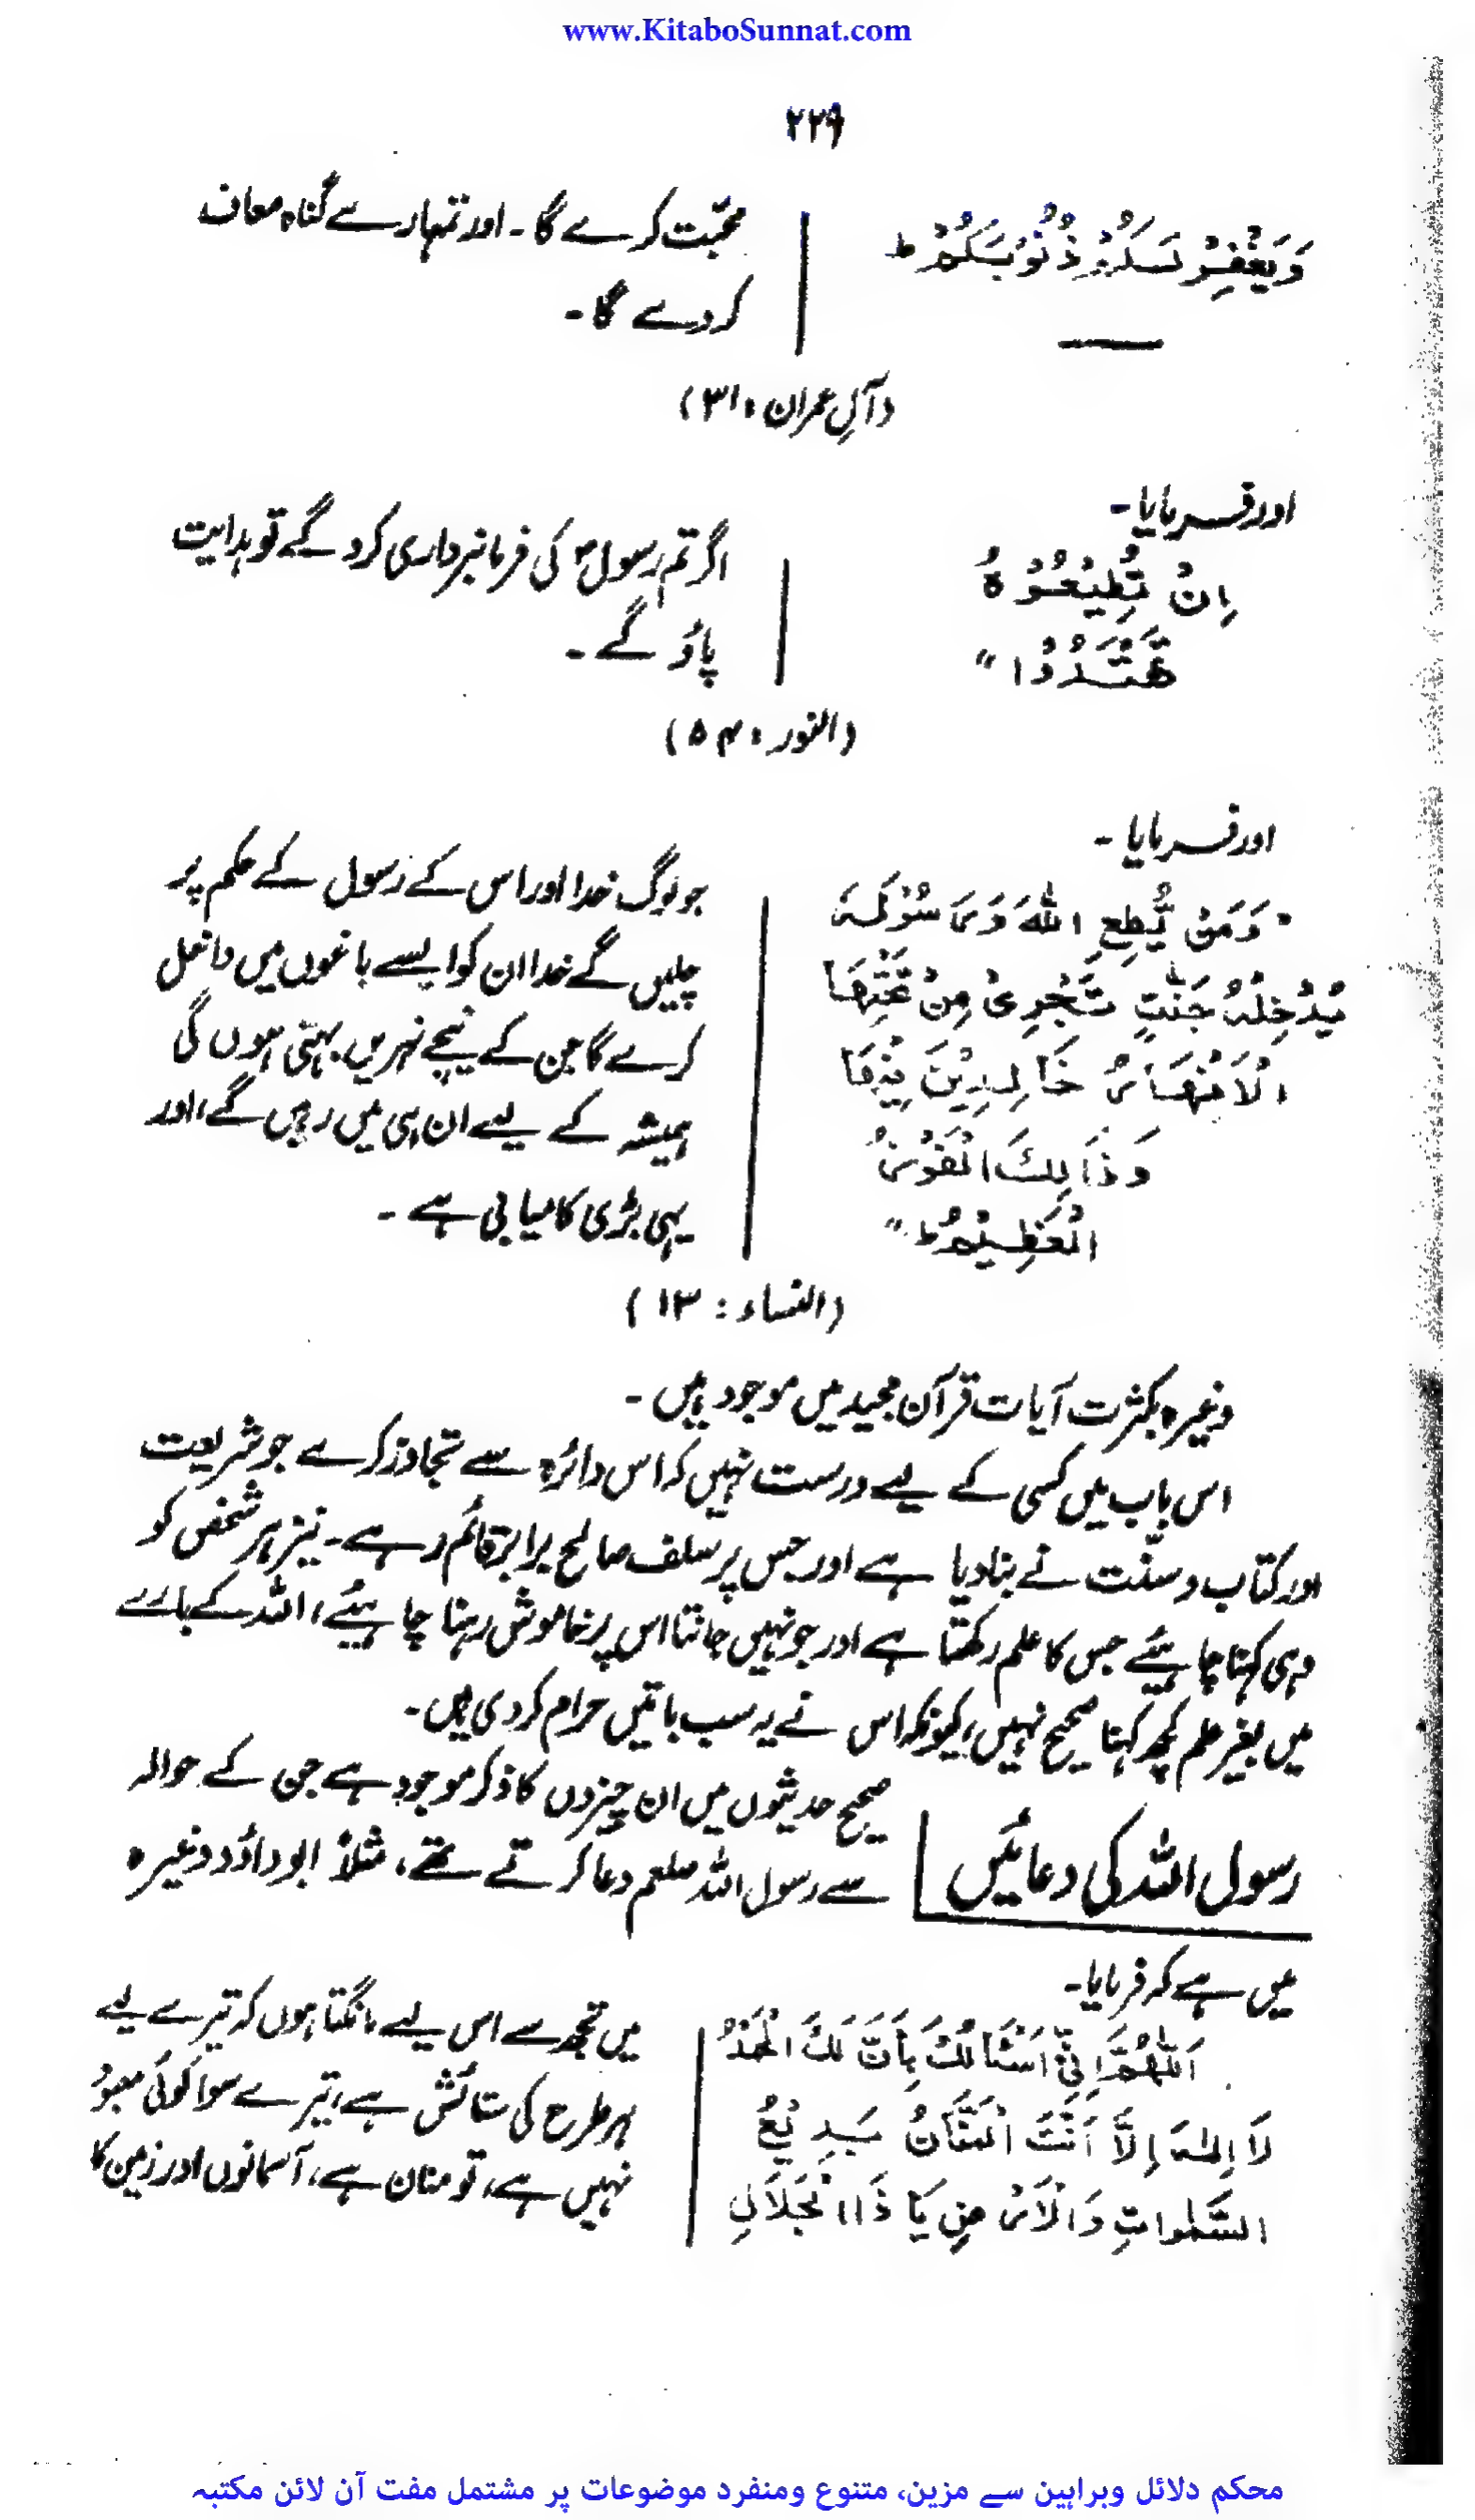 www.KitaboSunnat.com
۲۳۹
وَيَغْفِرْ لَكُمْ ذُنُوْبَكُمْ ط
محبّت کرے گا۔ اور تمہارے گناہ معاف
کر دے گا۔
(آلِ عمران: ۳۱)
اور فرمایا۔
اِنْ تُطِيْعُوْهُ
تَهْتَدُوْا"
اگر تم رسولؐ کی فرمانبرداری کرو گے تو ہدایت
پاؤ گے۔
(النور: ۵۴)
اور فرمایا۔
"وَمَنْ يُّطِعِ اللّٰهَ وَرَسُوْلَهٗ
يُدْخِلْهُ جَنّٰتٍ تَجْرِىْ مِنْ تَحْتِهَا
الْاَنْهَارُ خَالِدِيْنَ فِيْهَا
وَذَالِكَ الْفَوْزُ
الْعَظِيْمُ ط"
جو لوگ خدا اور اس کے رسول کے حکم پر
چلیں گے خدا ان کو ایسے باغوں میں داخل
کرے گا جن کے نیچے نہریں بہتی ہوں گی
ہمیشہ کے لیے ان ہی میں رہیں گے، اور
یہی بڑی کامیابی ہے۔
(النساء: ۱۳)
وغیرہ بکثرت آیات قرآن مجید میں موجود ہیں۔
اس باب میں کسی کے لیے درست نہیں کہ اس دائرہ سے تجاوز کرے جو شریعت
اور کتاب و سنّت نے بنا دیا ہے اور جس پر سلف صالح برابر قائم رہے۔ نیز ہر شخص کو
وہی کہنا چاہیئے جس کا علم رکھتا ہے اور جو نہیں جانتا اس پر خاموش رہنا چاہیئے، اللہ کے بارے
میں بغیر علم کچھ کہنا صحیح نہیں، کیونکہ اس نے یہ سب باتیں حرام کر دی ہیں۔
رسول اللہ کی دعائیں
صحیح حدیثوں میں ان چیزوں کا ذکر موجود ہے جن کے حوالہ
سے رسول اللہ صلعم دعا کرتے تھے، مثلاً ابو داؤد وغیرہ
میں ہے کہ فرمایا۔
اَللّٰهُمَّ اِنِّىْ اَسْئَالُكَ بِاَنَّ لَكَ الْحَمْدُ
لَا اِلٰهَ اِلَّا اَنْتَ الْمَنَّانُ بَدِيْعُ
السَّمٰوَاتِ وَالْاَرْضِ يَا ذَاالْجَلَالِ
میں تجھ سے اس لیے مانگتا ہوں کہ تیرے لیے
ہر طرح کی ستائش ہے، تیرے سوا کوئی معبود
نہیں ہے، تو منان ہے، آسمانوں اور زمین کا
محکم دلائل وبراہین سے مزین، متنوع ومنفرد موضوعات پر مشتمل مفت آن لائن مکتبہ